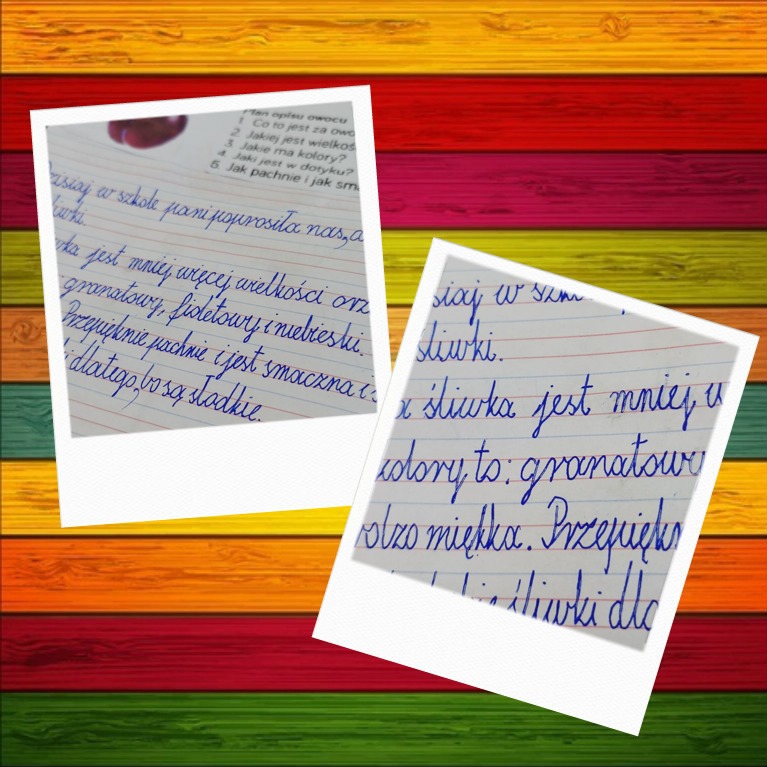 Plan opisu owocu
1. Co to jest za owo
2. Jakiej jest wielkoś
3. Jakie ma kolory?
4. Jaki jest w dotyku?
5. Jak pachnie i jak sma
zisiaj w szkole pani poprosiła nas, a
liwki.
wka jest mniej więcej wielkości orz
granatowy, fioletowy i niebieski.
Przepięknie pachnie i jest smaczna i s
i dlatego, bo są słodkie.
siaj w szko
śliwki.
a śliwka jest mniej w
kolory to: granatowy
rdzo miękka. Przepiękn
śliwki dla